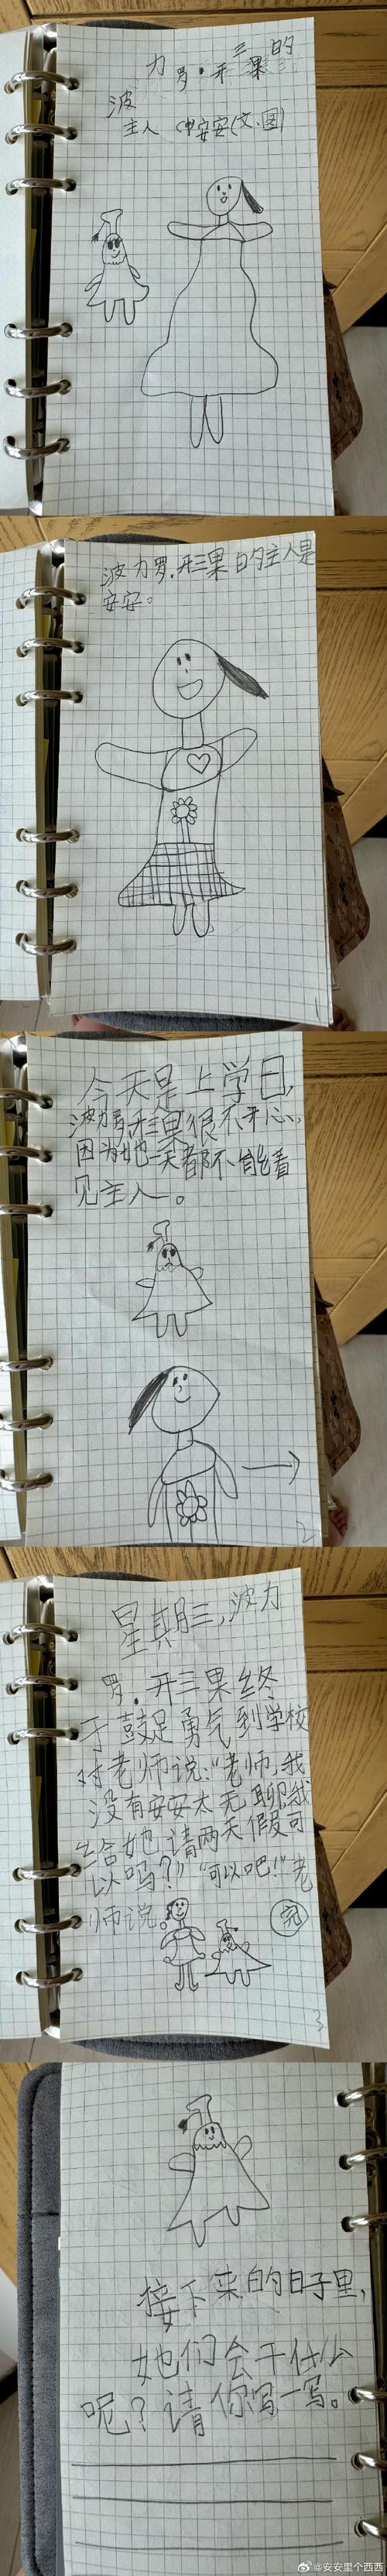 力罗·开三果的
波
主人 安安(文、图)
波力罗.开三果的主人是
安安。
1
今天是上学日,
波力罗.开三果很不开心,
因为她一天都不能看
见主人。
2
星期三,波力
罗.开三果终
于鼓足勇气到学校
对老师说:“老师,我
没有安安太无聊我
给她请两天假可
以吗?”“可以吧!”老
师说。
完
3
接下来的日子里,
她们会干什么
呢?请你写一写。
@安安里个西西